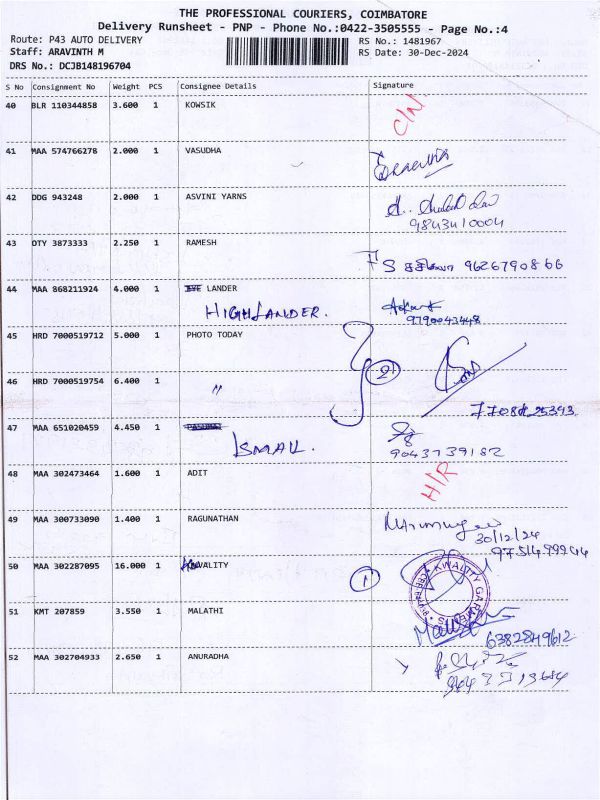 THE PROFESSIONAL COURIERS, COIMBATORE
Delivery Runsheet - PNP - Phone No.:0422-3505555 - Page No.:4
Route: P43 AUTO DELIVERY RS No.: 1481967
Staff: ARAVINTH M RS Date: 30-Dec-2024
DRS No.: DCJB148196704
S No Consignment No Weight PCS Consignee Details Signature
40 BLR 110344858 3.600 1 KOWSIK C/N
41 MAA 574766278 2.000 1 VASUDHA
42 DDG 943248 2.000 1 ASVINI YARNS
9843410004
43 OTY 3873333 2.250 1 RAMESH
9626790866
44 MAA 868211924 4.000 1 LANDER
HIGHLANDER. 9790043448
45 HRD 7000519712 5.000 1 PHOTO TODAY
2
46 HRD 7000519754 6.400 1 "
47 MAA 651020459 4.450 1
ISMAIL. 9043739182
48 MAA 302473464 1.600 1 ADIT H/R
49 MAA 300733090 1.400 1 RAGUNATHAN
30/12/24
50 MAA 302287095 16.000 1 KWALITY 1
KWALITY GARMENTS
51 KMT 207859 3.550 1 MALATHI
6382849612
52 MAA 302704933 2.650 1 ANURADHA